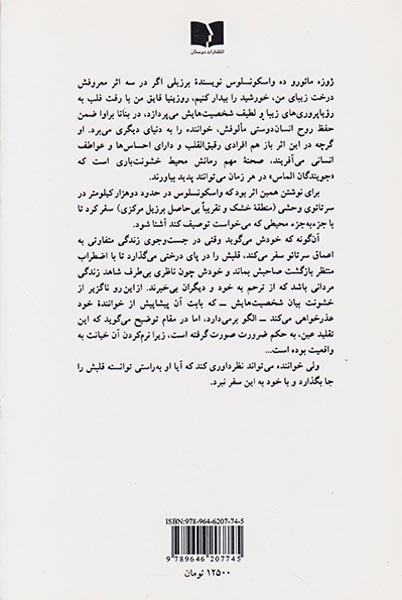 انتشارات دوستان
ژوزه مائورو ده واسکونسلوس نویسندهٔ برزیلی اگر در سه اثر معروفش
درخت زیبای من، خورشید را بیدار کنیم، روزینیا قایق من با رقت قلب به
رؤیاپروری‌های زیبا و لطیف شخصیت‌هایش می‌پردازد، در بنانا براوا ضمن
حفظ روح انسان‌دوستی مألوفش، خواننده را به دنیای دیگری می‌برد. او
گرچه در این اثر باز هم افرادی رقیق‌القلب و دارای احساس‌ها و عواطف
انسانی می‌آفریند، صحنهٔ مهم رمانش محیط خشونت‌باری است که
«جویندگان الماس» در هر زمان می‌توانند پدید بیاورند.
برای نوشتن همین اثر بود که واسکونسلوس در حدود دوهزار کیلومتر در
سرتائوی وحشی (منطقهٔ خشک و تقریباً بی‌حاصل برزیل مرکزی) سفر کرد تا
با جزءبه‌جزء محیطی که می‌خواست توصیف کند آشنا شود.
آن‌گونه که خودش می‌گوید وقتی در جست‌وجوی زندگی متفاوتی به
اعماق سرتائو سفر می‌کند، قلبش را در پای درختی می‌گذارد تا با اضطراب
منتظر بازگشت صاحبش بماند و خودش چون ناظری بی‌طرف شاهد زندگی
مردانی باشد که از ترحم به خود و دیگران بی‌خبرند. ازاین‌رو ناگزیر از
خشونت بیان شخصیت‌هایش ـــ که بابت آن پیشاپیش از خوانندهٔ خود
عذرخواهی می‌کند ـــ الگو برمی‌دارد، اما در مقام توضیح می‌گوید که این
تقلید عین، به حکم ضرورت صورت گرفته است، زیرا نرم‌کردن آن خیانت به
واقعیت بوده است...
ولی خواننده می‌تواند نظرداوری کند که آیا او به‌راستی توانسته قلبش را
جا بگذارد و با خود به این سفر نبرد.
ISBN: 978-964-6207-74-5
9789646207745
۱۲۵۰۰ تومان